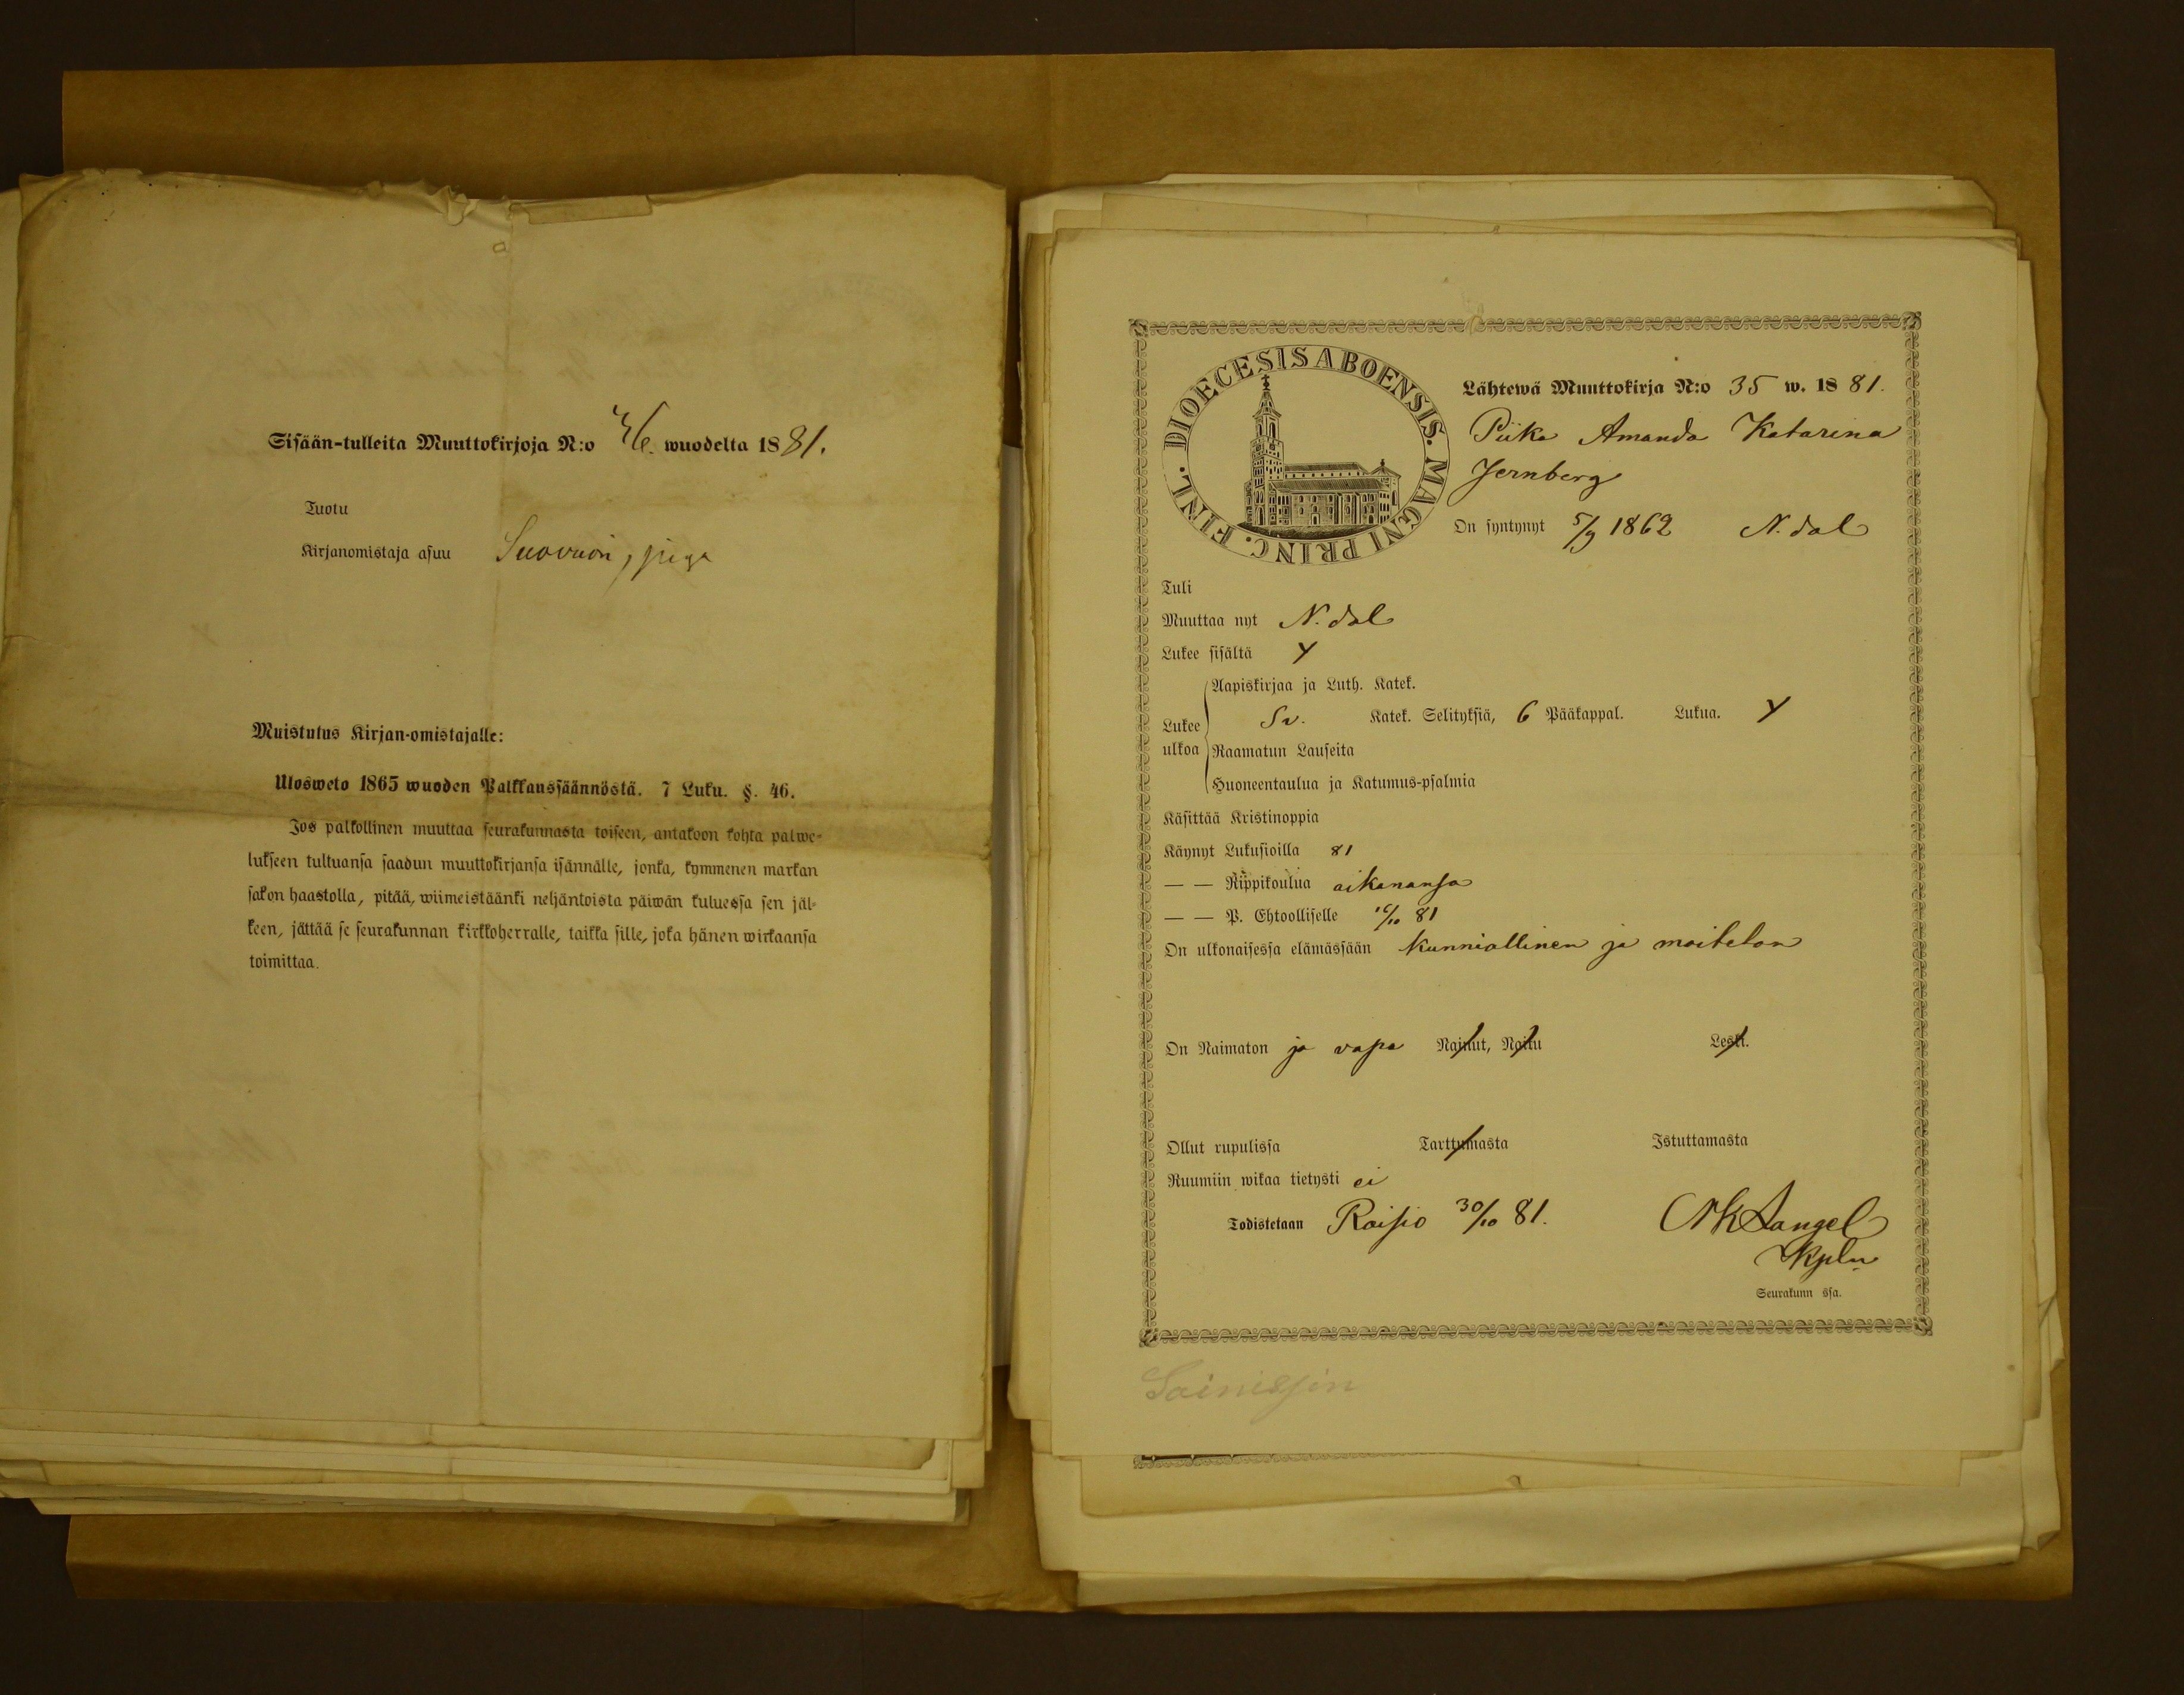 Sisään-tulleita Muuttokirjoja N:o 36. wuodelta 1881.
Tuotu
Kirjanomistaja asuu Suovuori, piga
Muistutus Kirjan-omistajalle:
Ulosweto 1865 wuoden Palkkaussäännöstä. 7 Luku. §. 46.
Jos palkollinen muuttaa seurakunnasta toiseen, antakoon kohta palwe-
lukseen tultuansa saadun muuttokirjansa isännälle, jonka, kymmenen markan
sakon haastolla, pitää, wiimeistäänki neljäntoista päiwän kuluessa sen jäl-
keen, jättää se seurakunnan kirkkoherralle, taikka sille, joka hänen wirkaansa
toimittaa.
DIOECESIS ABOENSIS. MAGNI PRINC. FINL.
Lähtewä Muuttokirja N:o 35 w. 1881.
Piika Amanda Katarina
Jernberg
On syntynyt 5/9 1862 N.dal
Tuli
Muuttaa nyt N.dal
Lukee sisältä Y
Aapiskirjaa ja Luth. Katek.
Lukee ulkoa Sv. Katek. Selityksiä, 6 Pääkappal. Lukua. Y
Raamatun Lauseita
Huoneentaulua ja Katumus-psalmia
Käsittää Kristinoppia
Käynyt Lukusioilla 81
— — Rippikoulua aikanansa
— — P. Ehtoolliselle 16/10 81
On ulkonaisessa elämässään kunniallinen ja moiteton
On Naimaton ja vapa Nainut, Naitu Leski.
Ollut rupulissa Tarttumasta Istuttamasta
Ruumiin wikaa tietysti ei
Todistetaan Raisio 30/10 81.
Kpln
Seurakunn ssa.